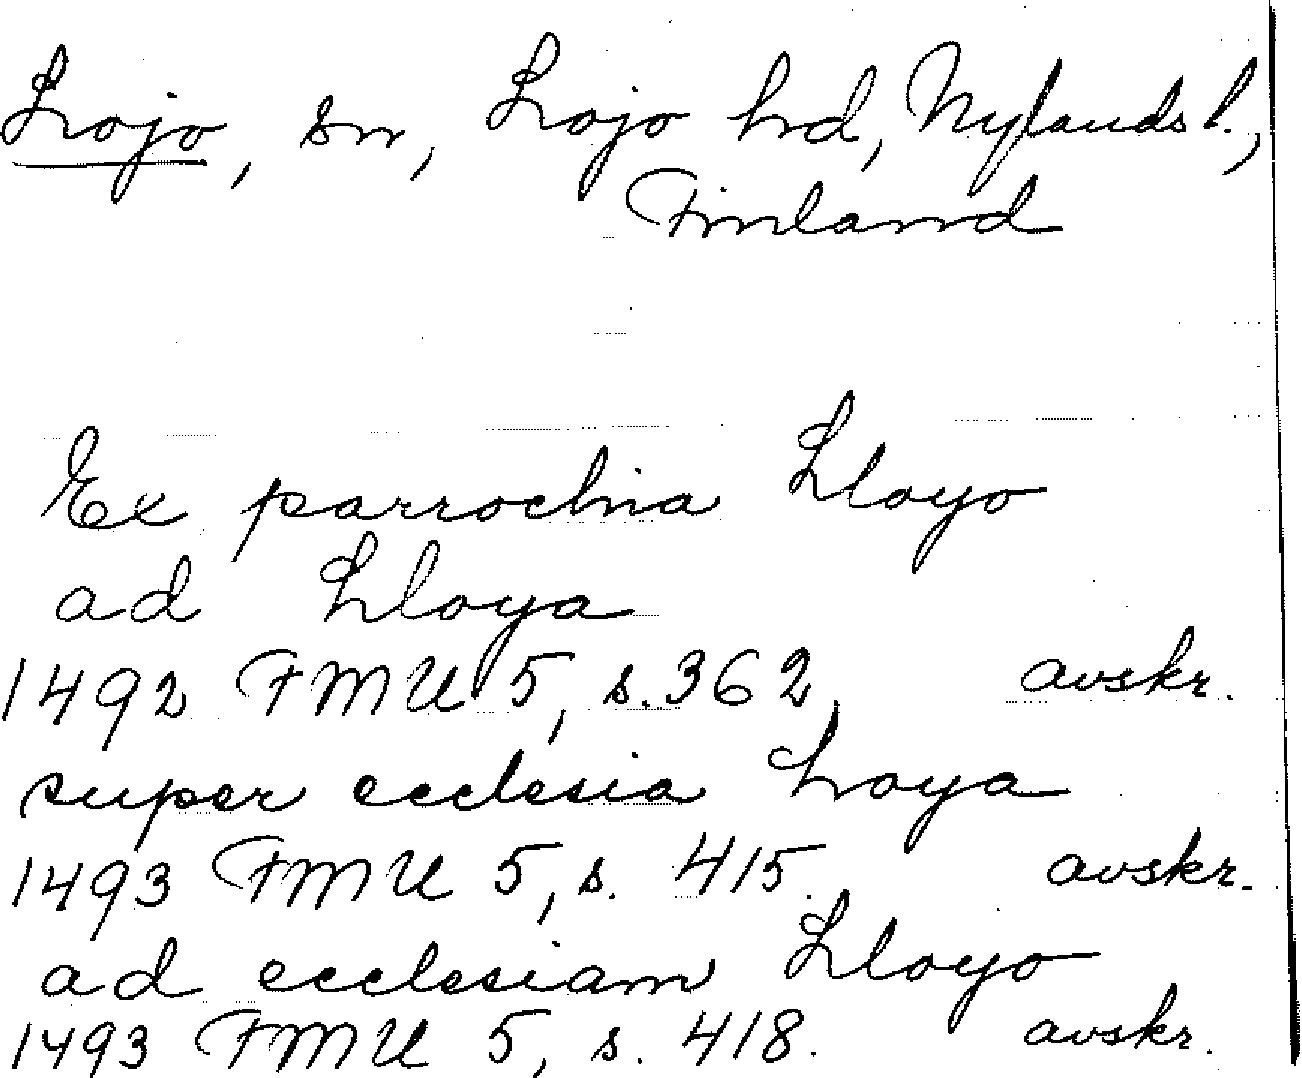 Lojo, sn, Lojo hd, Nylands l.,
Finland
Ex parrochia Lloyo
ad Lloya
1492 FMU 5, s. 362, avskr.
super ecclesia Loya
1493 FMU 5, s. 415. avskr.
ad ecclesiam Lloyo
1493 FMU 5, s. 418. avskr.